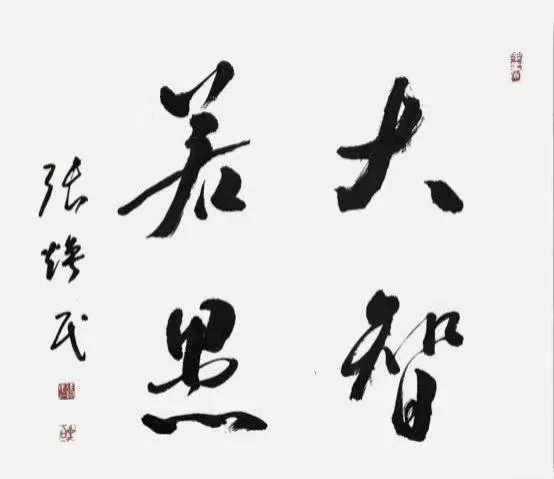 大智
若愚
张焕民